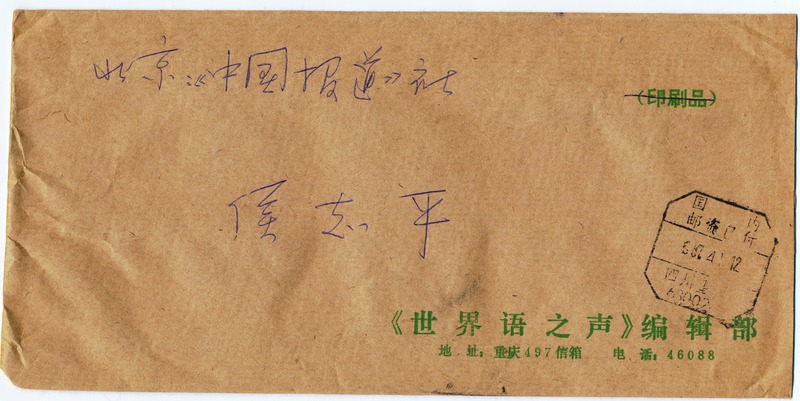 北京《中国报道》社
(印刷品)
侯志平
国内
邮资已付
四川重
《世界语之声》编辑部
地 址：重庆497信箱 电 话：46088